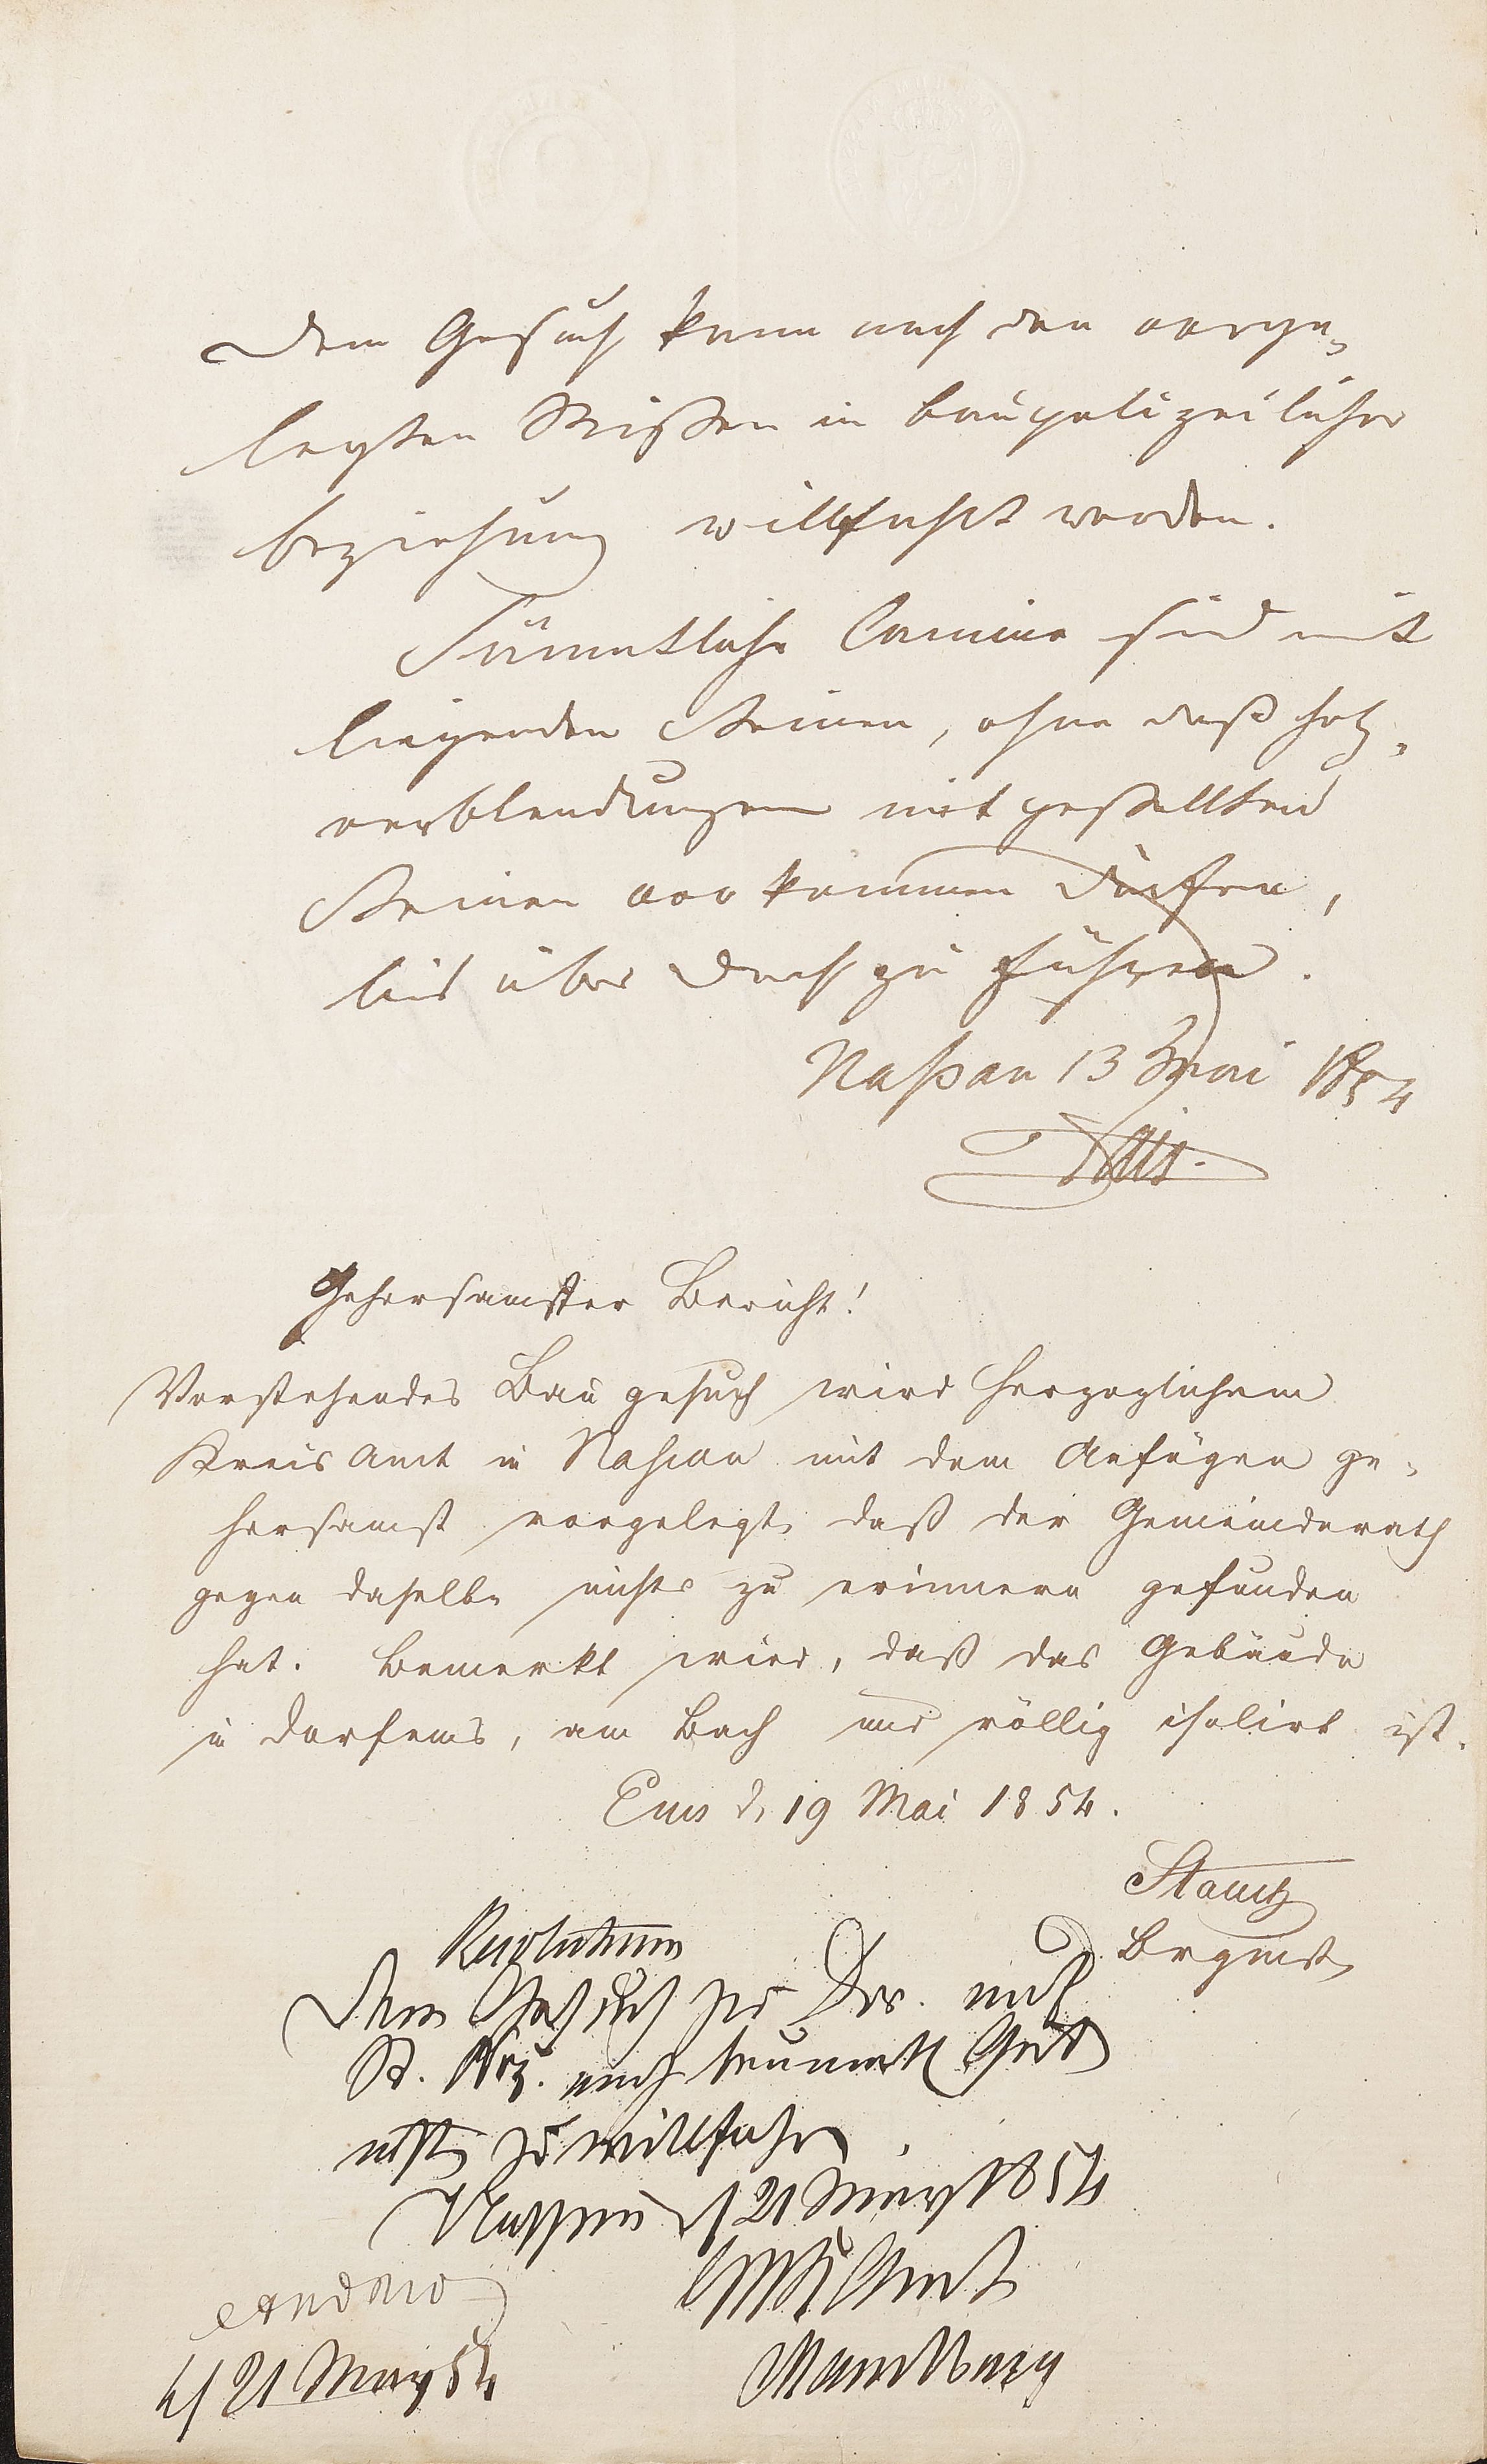 Dem Gesuch kann nach den vorge-
legten Rissen in baupolizeilicher
Beziehung willfahrt werden.
Sämmtliche Camine sind mit
liegenden Steinen, ohne daß Holz-
verblendungen mit gestellten
Steinen vorkommen dürfen,
bis über Dach zu führen.
Naßau 13 Mai 1854
Gehorsamster Bericht!
Vorstehendes Baugesuch wird Herzoglichem
Kreisamt in Nassau mit dem Anfügen ge-
horsamst vorgelegt, daß der Gemeinderath
gegen daselbe nichts zu erinnern gefunden
hat. Bemerkt wird, daß das Gebäude
in Dorfems, am Bach und völlig isolirt ist.
Ems d. 19 Mai 1854.
Resolutum
Dem Gesuch zu
zu willfahren
Nassau d 21 1854
21 May 54